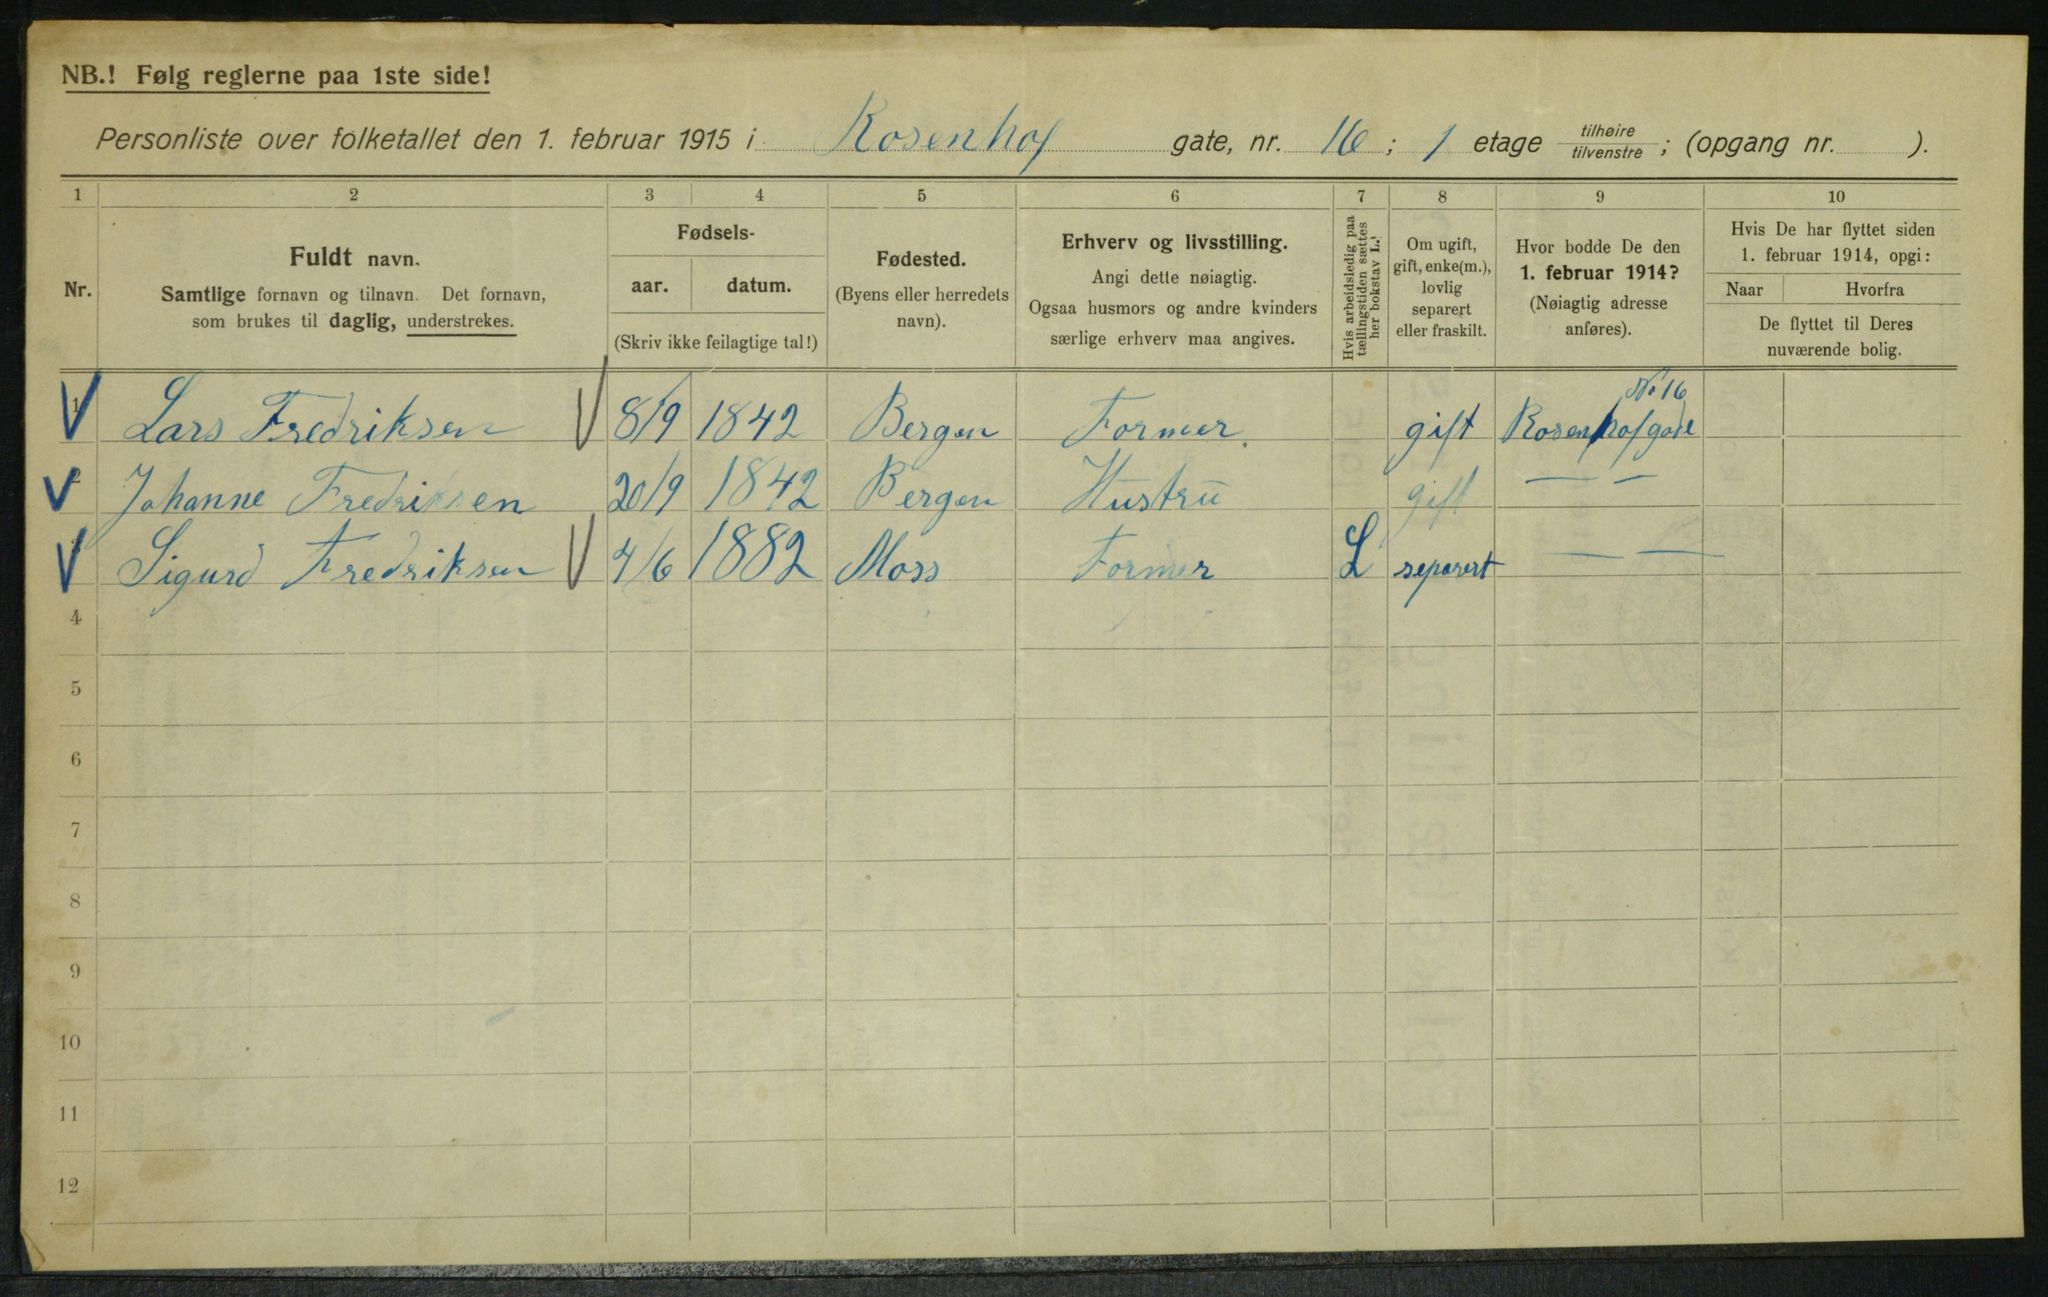 NB.! Følg reglerne paa 1ste side!
Personliste over folketallet den 1. februar 1915 i Rosenhof gate, nr. 16 ; 1 etage tilhøire tilvenstre ; (opgang nr. ).
1 2 3 4 5 6 7 8 9 10
Nr.
Fuldt navn.
Samtlige fornavn og tilnavn. Det fornavn,
som brukes til daglig, understrekes.
Fødsels-
aar. datum.
(Skriv ikke feilagtige tal!)
Fødested.
(Byens eller herredets
navn).
Erhverv og livsstilling.
Angi dette nøiagtig.
Ogsaa husmors og andre kvinders
særlige erhverv maa angives.
Hvis arbeidsledig paa
tællingstiden sættes
her bokstav L.!
Om ugift,
gift, enke(m.),
lovlig
separert
eller fraskilt.
Hvor bodde De den
1. februar 1914?
(Nøiagtig adresse
anføres).
Hvis De har flyttet siden
1. februar 1914, opgi:
Naar Hvorfra
De flyttet til Deres
nuværende bolig.
No 16
1 Lars Fredriksen 8/9 1842 Bergen Former. gift Rosenhofgade
2 Johanne Fredriksen 20/9 1842 Bergen Hustru gift — —
3 Sigurd Fredriksen 4/6 1882 Moss Former L separert — —
4
5
6
7
8
9
10
11
12